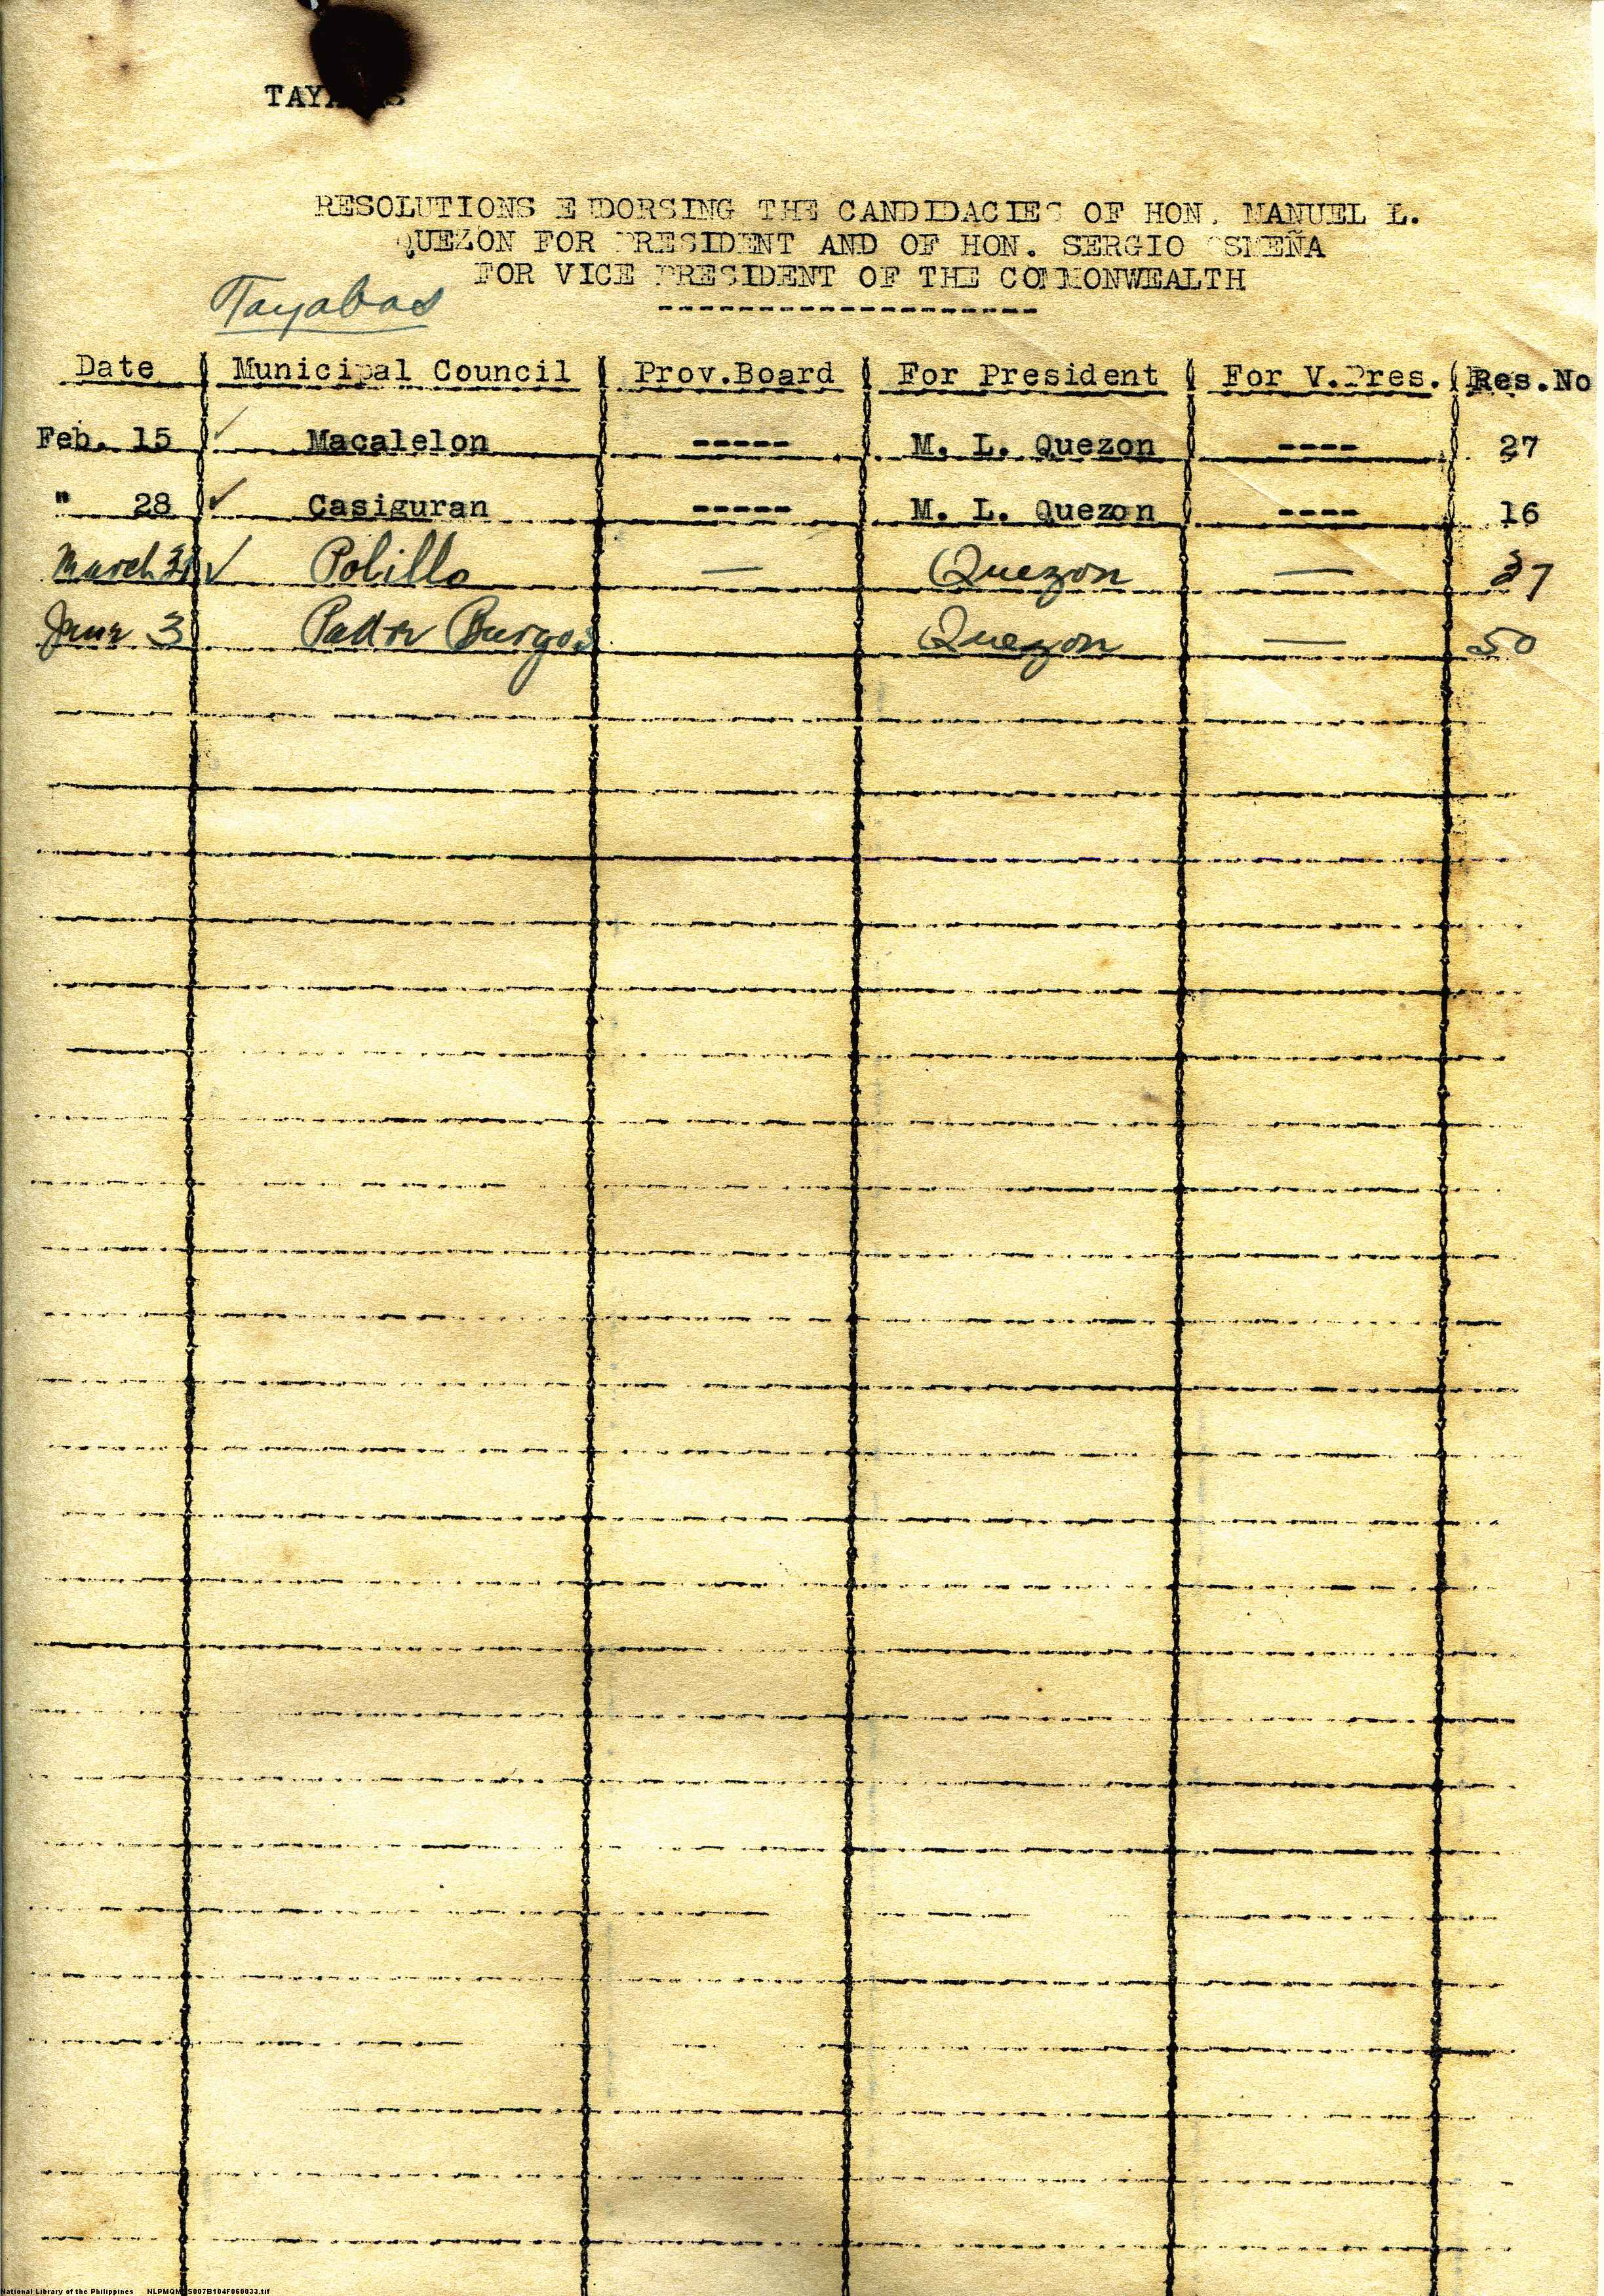 TAYABAS
RESOLUTIONS ENDORSING THE CANDIDACIES OF HON. MANUEL L.
QUEZON FOR PRESIDENT AND OF HON. SERGIO OSMEÑA
FOR VICE PRESIDENT OF THE COMMONWEALTH
Tayabas
Date Municipal Council Prov.Board For President For V.Pres. Res.No
Feb. 15 ✓ Macalelon ----- M. L. Quezon ---- 27
" 28 ✓ Casiguran ----- M. L. Quezon ---- 16
March ✓ Polillo — Quezon — 37
June 3 Padre Burgos Quezon — 50
National Library of the Philippines